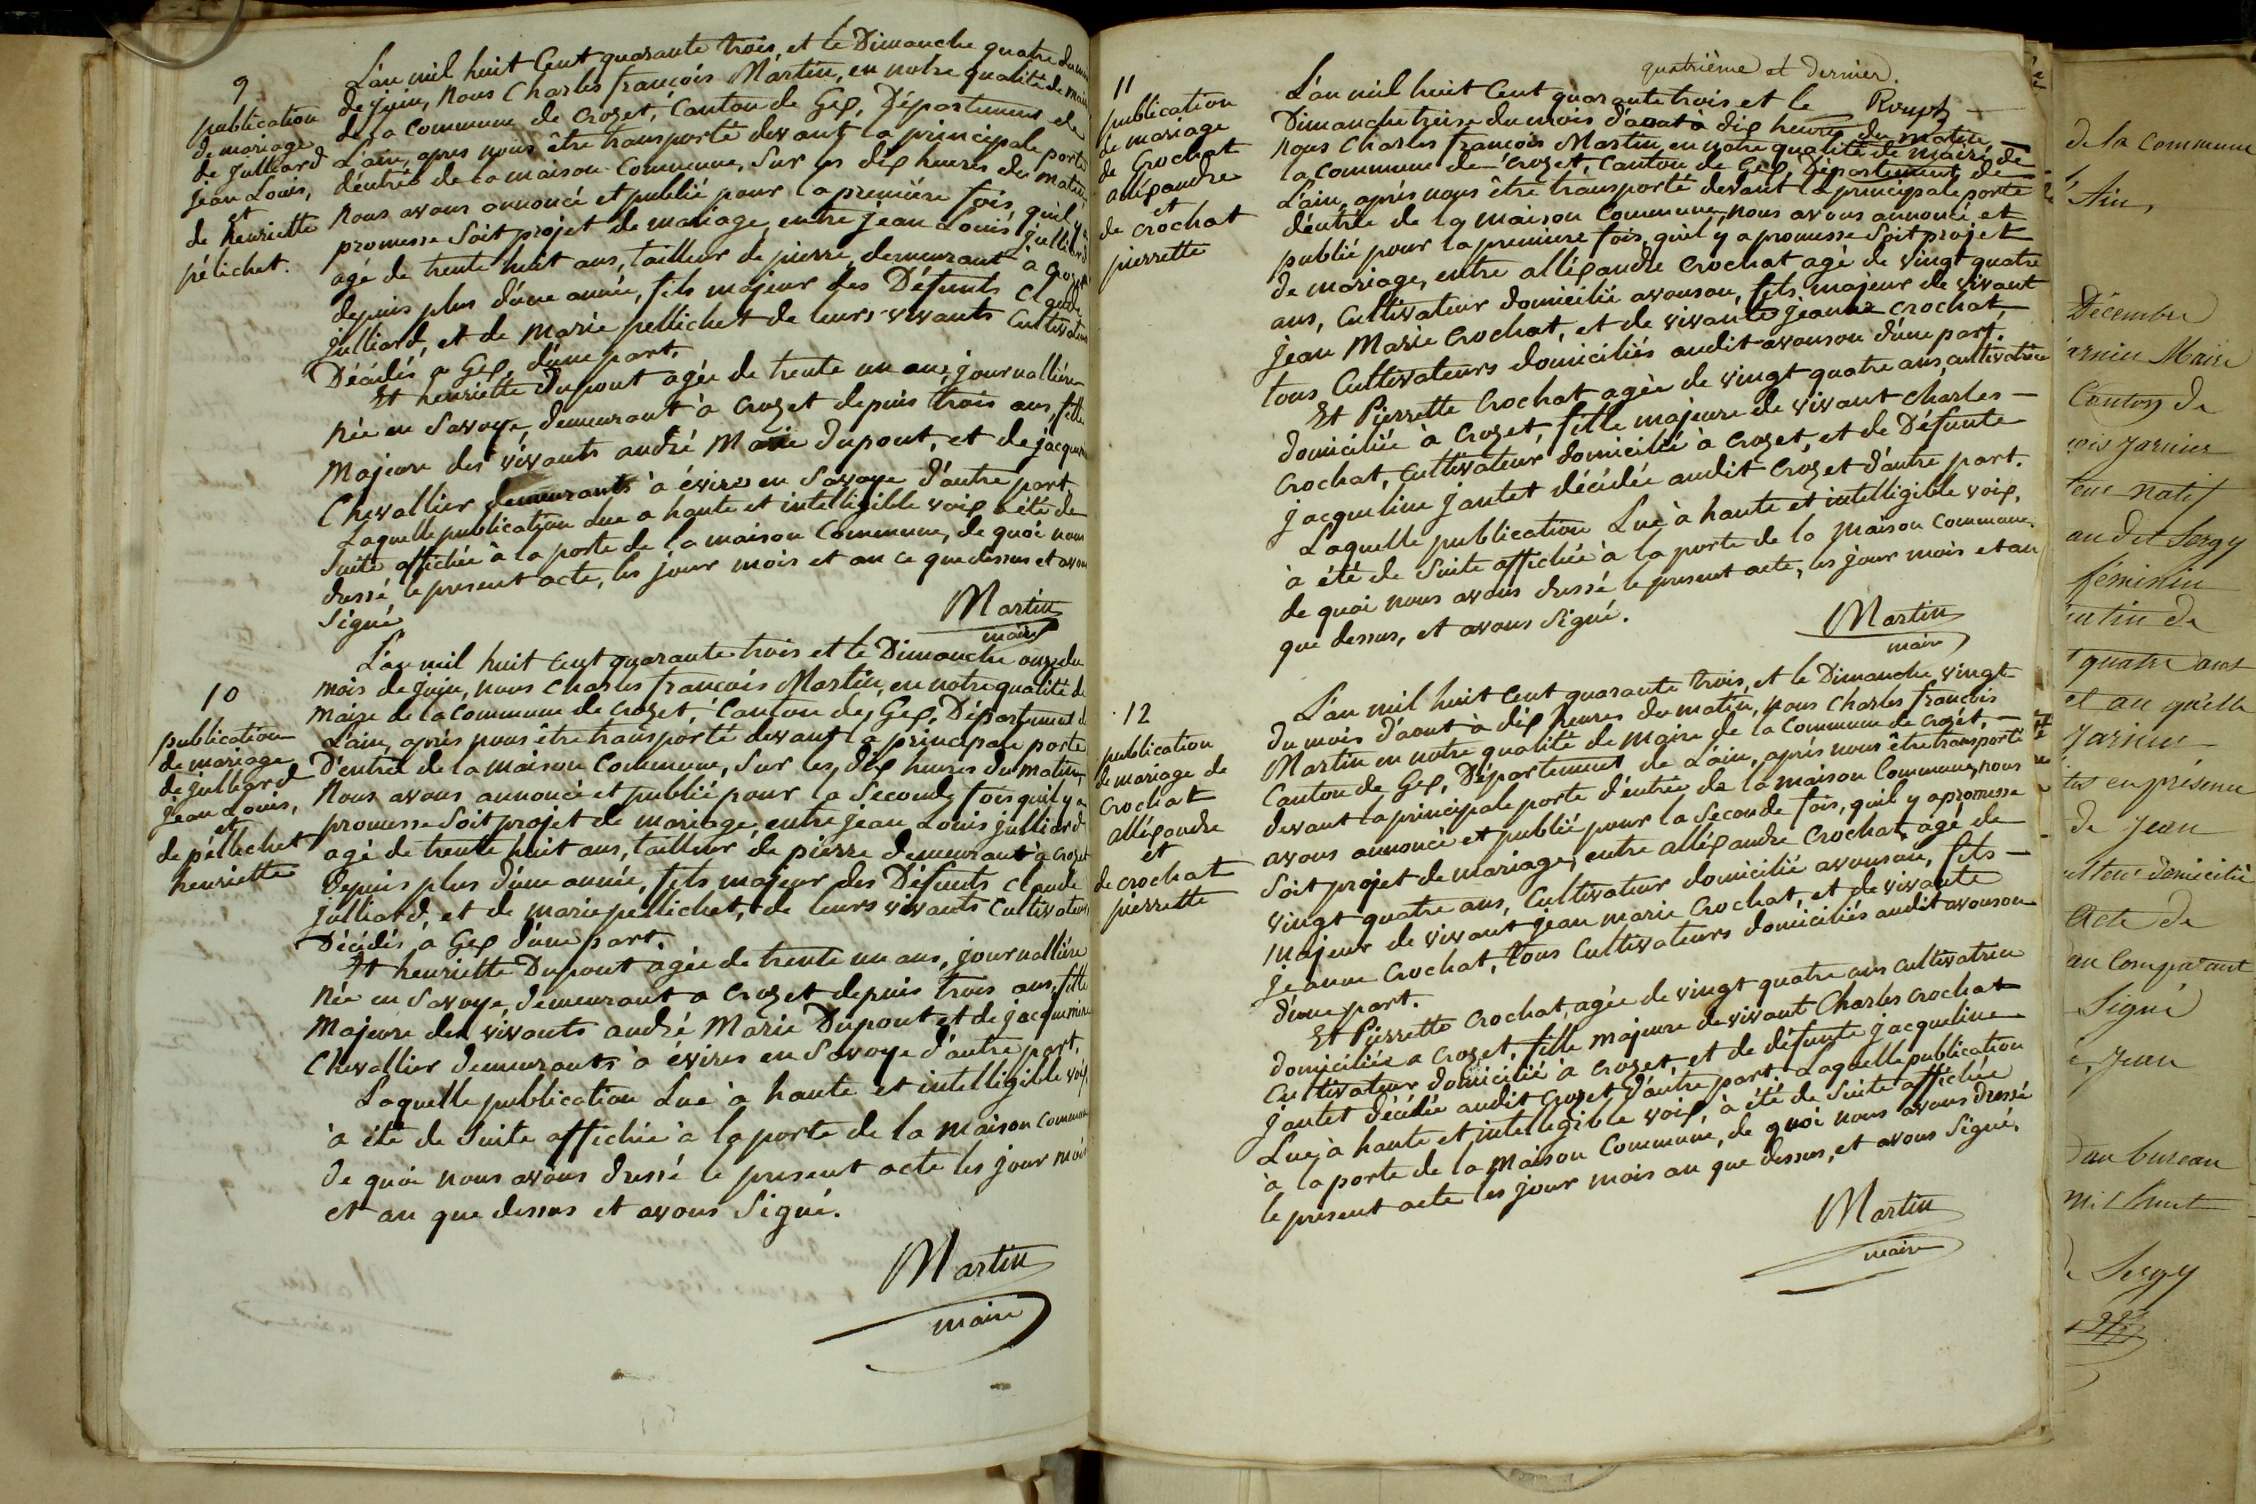 9
publication
de mariage
de julliard
jean Louis,
et
de henriette
pélichet.
L'an mil huit Cent quarante trois, et le Dimanche quatre du mois
de juin, nous Charles françois Martin, en notre qualité de maire
de la Commune de Crozet, Canton de Gex, Département de
L'ain, apres nous être transporté devant la principale porte
d'entrée de la maison Commune, Sur les dix heures du matin,
nous avons annoncé et publié pour la première fois, quil y a
promesse Soit projet de mariage, entre jean Louis julliard
agé de trente huit ans, tailleur de pierre, demeurant à Crozet
depuis plus d'une année, fils majeur des Défunts Claude
julliard, et de Marie pellichet de leurs vivants Cultivateurs
Décédés a Gex, d'une part.
Et henriette Dupont agée de trente un ans, journallière
née en Savoye, demeurant à Crozet depuis trois ans, fille
Majeure des vivants andré Marie Dupont, et de jacquemine
Chevallier demeurants à évires en Savoye d'autre part.
Laquelle publication lue a haute et intelligible voix a été de
Suite affichée à la porte de la maison Commune, de quoi nous
dressé le present acte, les jour mois et an ce que dessus et avons
Signé
Martin
maire
10
publication
de mariage
de julliard
jean Louis,
et
de péllechet
henriette
L'an mil huit cent quarante trois et le Dimanche onze du
mois de juin, nous Charles francois Martin, en notre qualité de
maire de la Commune de Crozet, Canton de Gex, Département de
L'ain, aprés nous être transporté devant la principale porte
D'entrée de la maison Commune, Sur les dix heures du matin,
Nous avons annoncé et publié pour la Seconde fois quil y a
promesse Soit projet de mariage, entre jean Louis julliard
agé de trente huit ans, tailleur de pierre demeurant à Crozet
Depuis plus d'une année, fils majeur des Défunts Claude
julliard, et de marie pellichet, de leurs vivants Cultivateurs
Décédés, à Gex d'une part.
Et henriette Dupont agée de trente un ans, journallière
née en Savoye, demeurant a Crozet depuis trois ans, fille
Majeure des vivants andré Marie Dupont et de jacquemine
Chevallier demeurants à évires en Savoye d'autre part.
Laquelle publication Lue à haute et intelligible voix
à été de Suite affichée à la porte de la Maison Commune
de quoi nous avons dressé le present acte les jour mois
et an que dessus et avons Signé.
Martin
maire
quatrième et dernier.
11
publication
de mariage
de Crochat
alléxandre
et
de crochat
pierrette
L'an mil huit Cent quarante trois et le
Dimanche treise du mois d'aoat à dix heures du matin,
nous Charles francois Martin, en notre qualité de maire de
la Commune de Crozet, Canton de Gex, Département de
L'ain, aprés nous être transporté devant la principale porte
d'entrée de la maison Commune, nous avons annoncé et
publié pour la premiere fois, quil y a promesse Soit projet
de mariage, entre alléxandre Crochat agé de vingt quatre
ans, Cultivateur domicilié avouson, fils majeur de vivant
jean Marie Crochat, et de vivante jeanne Crochat,
tous Cultivateurs domiciliés audit avouson d'une part.
Et Pierrette Crochat agée de vingt quatre ans, cultivatrice
domiciliée à Crozet, fille majeure de vivant Charles
Crochat, Cultivateur domicilié à Crozet, et de Défunte
jacqueline jantet décédée audit Crozet d'autre part.
Laquelle publication Lue à haute et intelligible voix,
à été de Suite affichée à la porte de la maison Commune.
de quoi nous avons dressé le present acte, les jour mois et an
que dessus, et avons Signé.
Martin
maire
12
publication
de mariage de
Crochat
alléxandre
et
de crochat
pierrette
L'an mil huit Cent quarante trois, et le Dimanche vingt
du mois d'aout à dix heures du matin, nous Charles francois
Martin en notre qualité de Maire de la Commune de Crozet,
Canton de Gex, Département de L'ain, aprés nous être transporté
devant la principale porte d'entrée de la maison Commune, nous
avons annoncé et publié pour la Seconde fois, quil y a promesse
Soit projet de mariage, entre alléxandre Crochat, agé de
vingt quatre ans, Cultivateur domicilié avouson, fils
Majeur de vivant jean marie Crochat, et de vivante
jeanne Crochat, tous Cultivateurs domiciliés audit avouson
d'une part.
Et Pierrette Crochat, agée de vingt quatre ans cultivatrice
domiciliée a Crozet, fille majeure de vivant Charles Crochat
Cultivateur domicilié à Crozet, et de défunte jacqueline
jantet décédée audit Crozet d'autre part. Laquelle publication
Lue à haute et intelligible voix, à été de Suite affichée
à la porte de la Maison Commune, de quoi nous avons dressé
le présent acte les jour mois an que dessus, et avons Signé.
Martin
maire
de la Commune
Ain,
Décembre
Maire
Canton de
natif
audit Sergy
féminin
de
quatre
et an qu'elle
en présence
de Jean
domicilié
Acte de
Comparant
Signé
Jean
au bureau
Sergy